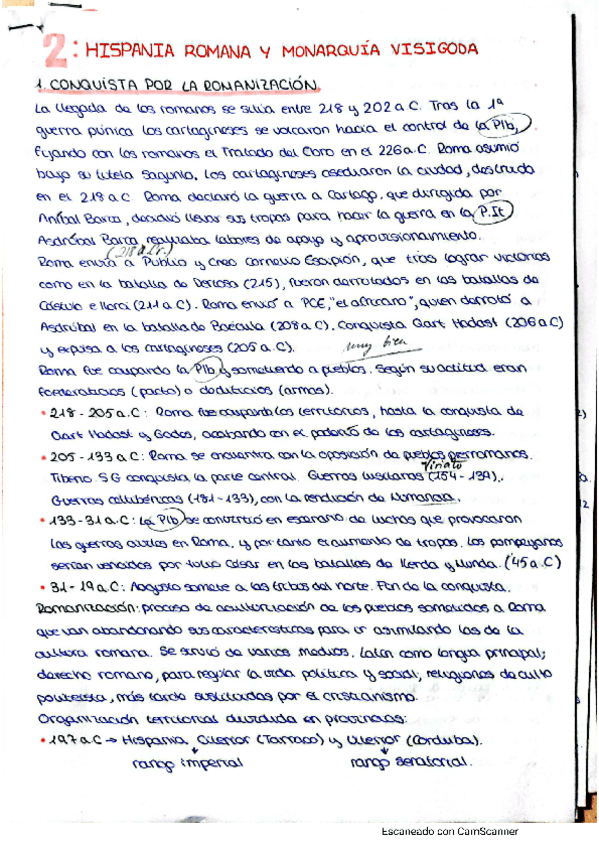 2: HISPANIA ROMANA Y MONARQUÍA VISIGODA
1. CONQUISTA POR LA ROMANIZACIÓN.
La llegada de los romanos se sitúa entre 218 y 202 a.C. Tras la 1ª
guerra púnica los cartagineses se volcaron hacia el control de la PIb,
fijando con los romanos el Tratado del Ebro en el 226 a.C. Roma asumió
bajo su tutela Sagunto, los cartagineses asediaron la ciudad, destruida
en el 218 a.C. Roma declaró la guerra a Cartago, que dirigida por
Aníbal Barca, decidió llevar sus tropas para hacer la guerra en la P.It
Asdrúbal Barca realizaba labores de apoyo y aprovisionamiento.
(218 a.C.)
Roma envía a Publio y Cneo Cornelio Escipión, que tras lograr victorias
como en la batalla de Dertosa (215), fueron derrotados en las batallas de
Cástulo e Ilorci (211 a.C). Roma envió a PCE, "el africano", quien derrotó a
Asdrúbal en la batalla de Baecula (208 a.C), conquista Qart Hadast (206 a.C)
y expulsa a los cartagineses (205 a.C). muy bien
Roma fue ocupando la PIb y sometiendo a pueblos. Según su actitud eran
foederativos (pacto) o dediticios (armas).
• 218 - 205 a.C: Roma fue ocupando los territorios, hasta la conquista de
Qart Hadast y Gades, acabando con el poderío de los cartagineses.
• 205 - 133 a.C: Roma se encuentra con la oposición de pueblos prerromanos.
Viriato
Tiberio S.G conquista la parte central. Guerras lusitanas (154 - 139),
Guerras celtibéricas (181 - 133), con la rendición de Numancia.
• 133 - 31 a.C: La PIb se convirtió en escenario de luchas que provocaron
las guerras civiles en Roma, y por tanto el aumento de tropas. Los pompeyanos
serían vencidos por Julio César en las batallas de Ilerda y Munda. (45 a.C)
• 31 - 19 a.C: Augusto somete a las tribus del norte. Fin de la conquista.
Romanización: proceso de aculturización de los pueblos sometidos a Roma
que van abandonando sus características para ir asimilando las de la
cultura romana. Se sirvió de varios medios: latín como lengua principal;
derecho romano, para regular la vida política y social; religiones de culto
politeísta, más tarde sustituidas por el cristianismo.
Organización territorial dividida en provincias:
• 197 a.C → Hispania Citerior (Tarraco) y Ulterior (Corduba).
rango imperial rango senatorial.
Escaneado con CamScanner